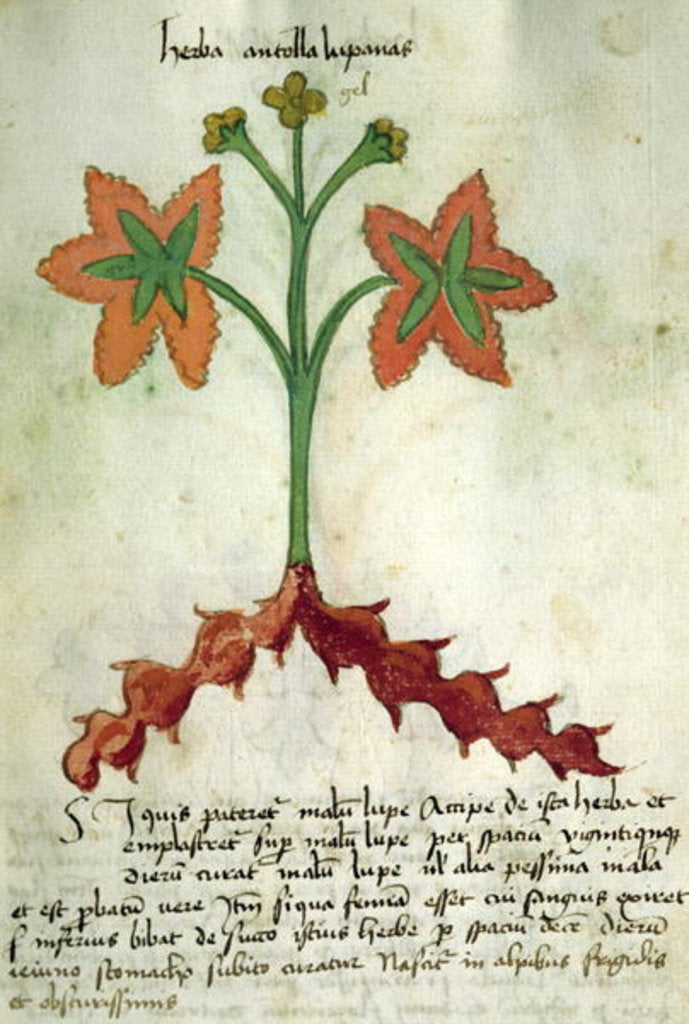 herba antolla lupanas
gel
Si quis pateret malū lupe Accipe de ista herba et
emplastret sup malū lupe per spaciū vigintiquinq
dierū curat malū lupe ul alia pessima mala
et est pbatū vere Itm si qua femīa esset cui sanguis exiret
inferius bibat de succo istius herbe p spaciū decē dierū
ieiuno stomacho subito curatur Nascit in alpibus frigidis
et obscurissimis